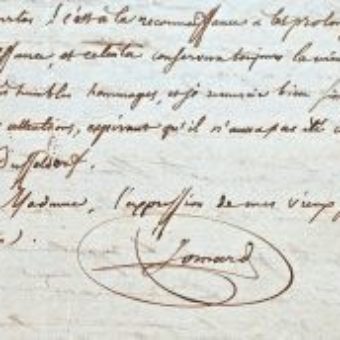 ! c'est à la reconnaissance à les prolon
et cela conservera toujours la
humbles hommages, et je bien
attentions, espérant qu'il n'aura pas été
Dusseldorf.
Madame, l'expression de mes vieux
).
Jomard